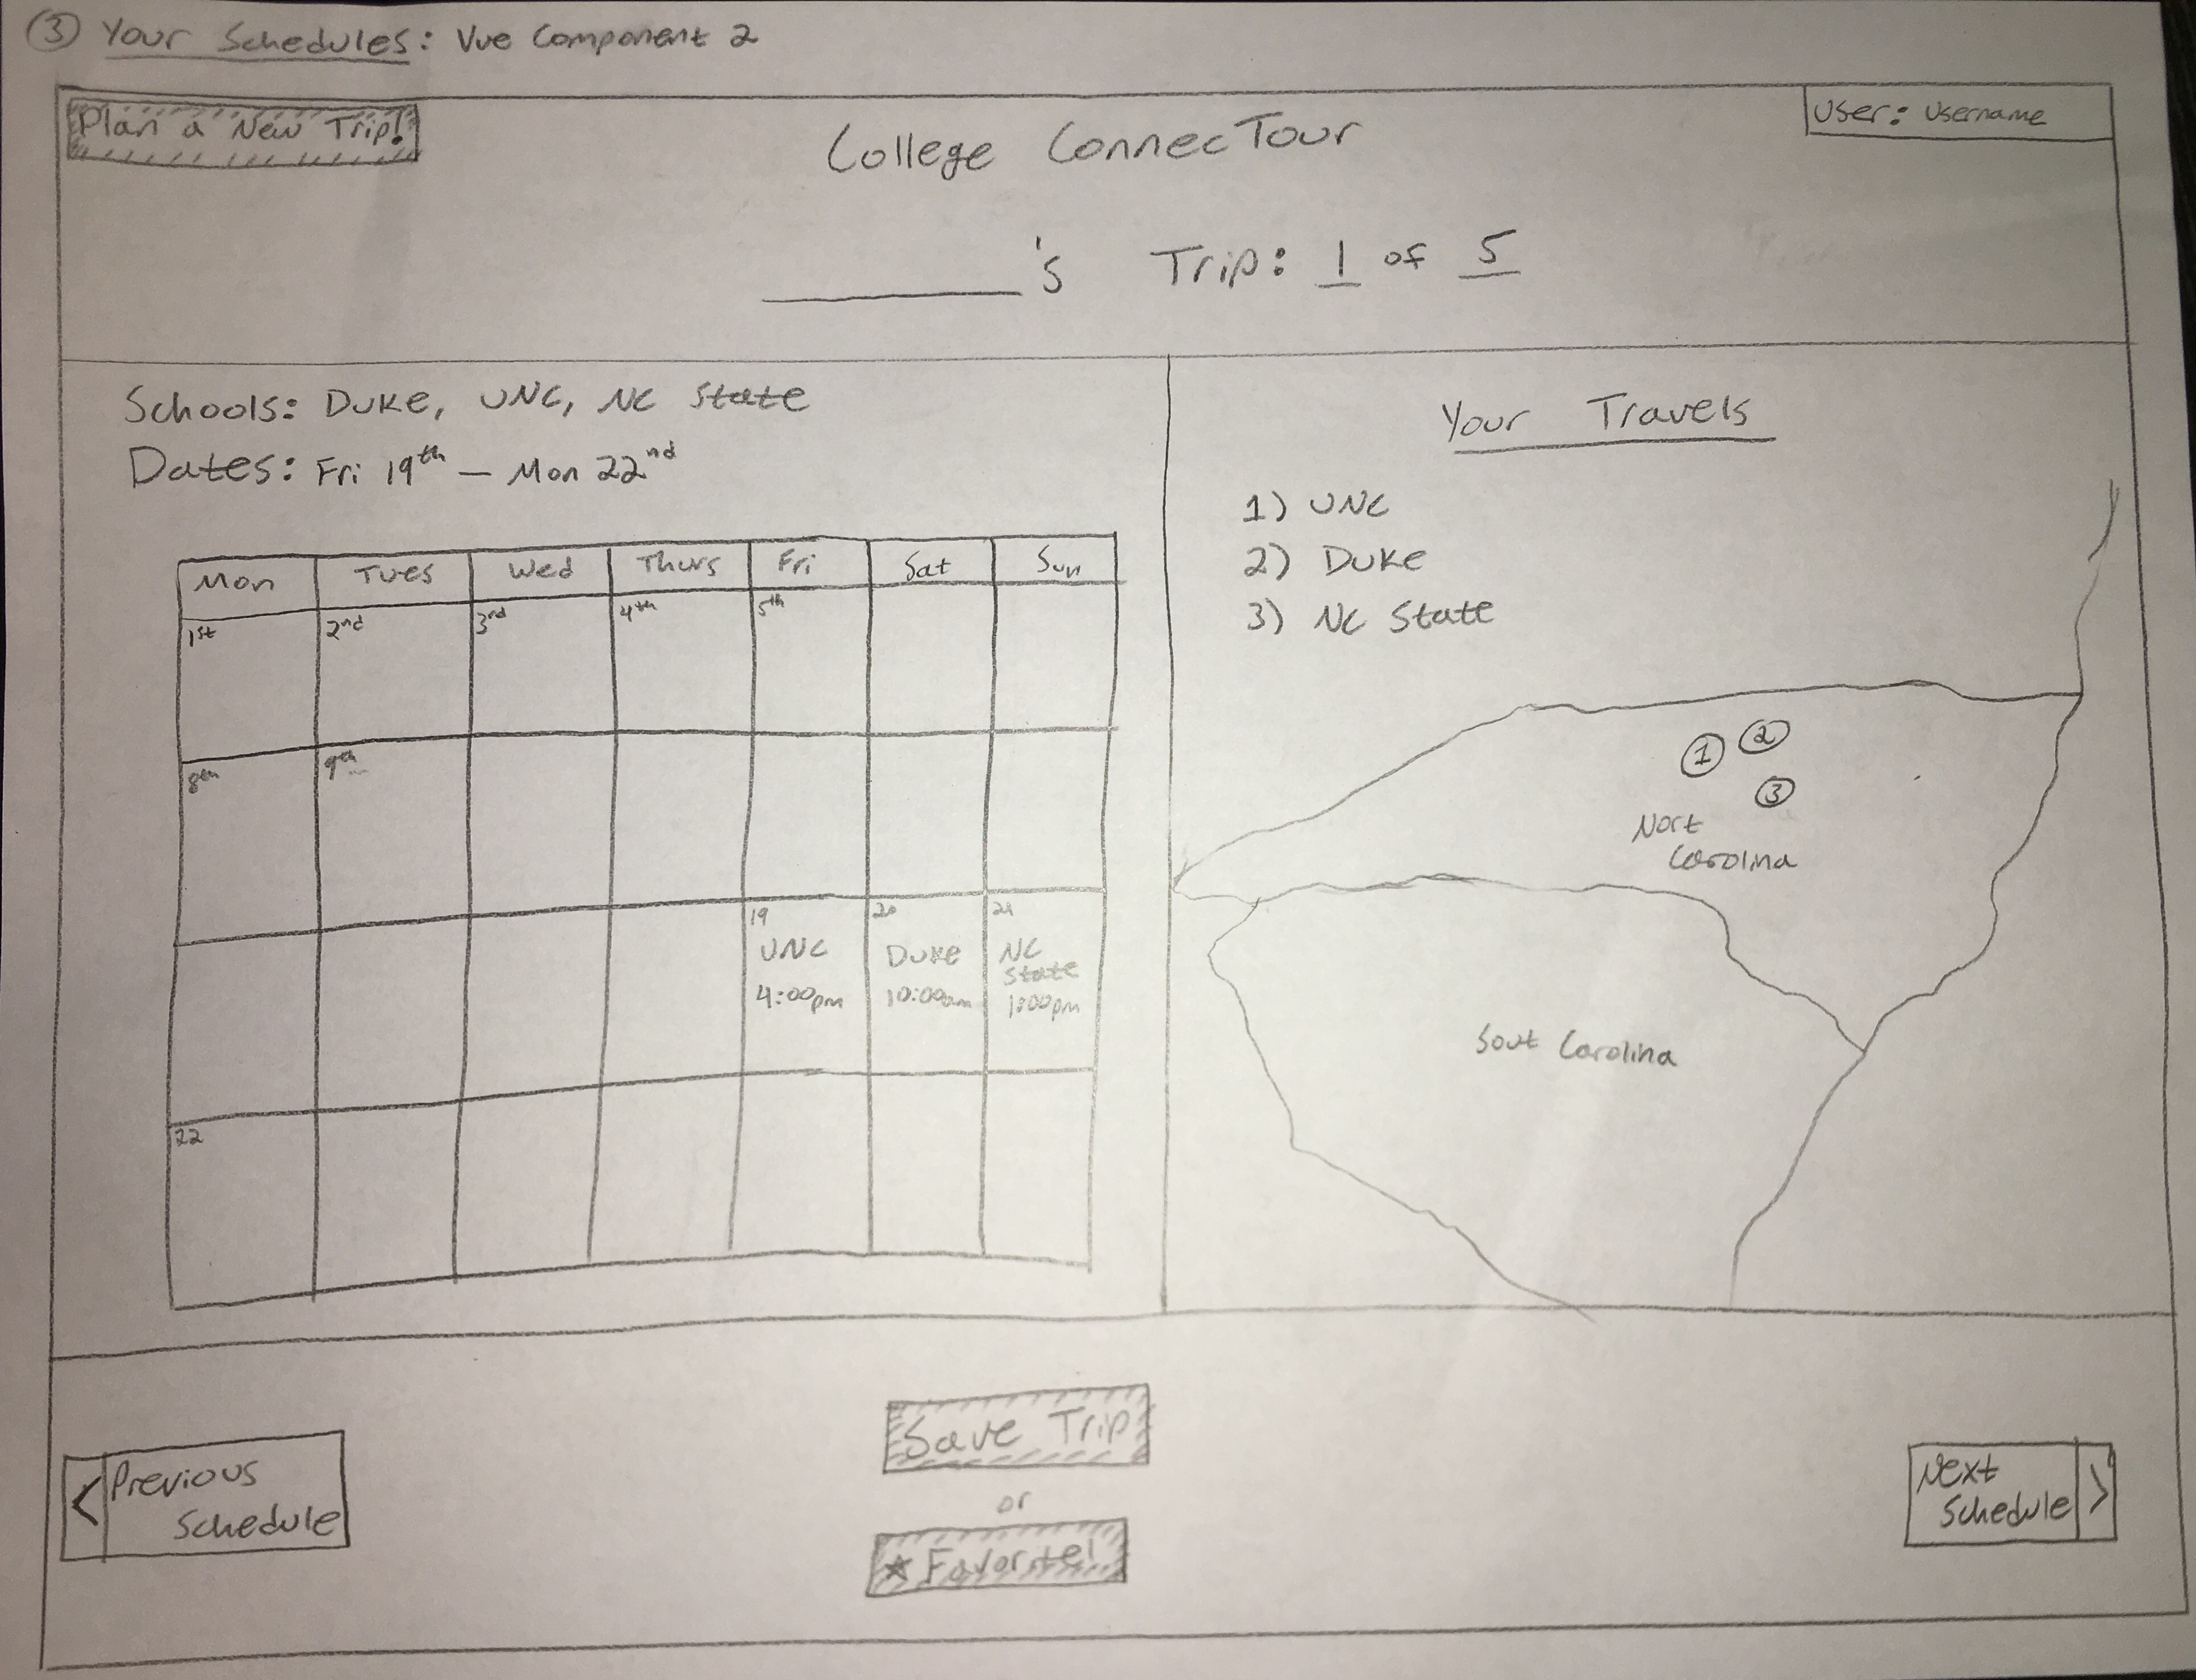 ③ Your Schedules: Vue Component 2
Plan a New Trip!
College ConnecTour
User: Username
________'s Trip: 1 of 5
Schools: Duke, UNC, NC State
Dates: Fri 19th — Mon 22nd
Mon Tues Wed Thurs Fri Sat Sun
1st 2nd 3rd 4th 5th
8th 9th
19 20 21
UNC Duke NC State
4:00pm 10:00am 1:00pm
22
Your Travels
1) UNC
2) Duke
3) NC State
① ②
③
Nort
Carolina
Sout Carolina
< Previous
Schedule
Save Trip
or
★ Favorite!
Next
Schedule >